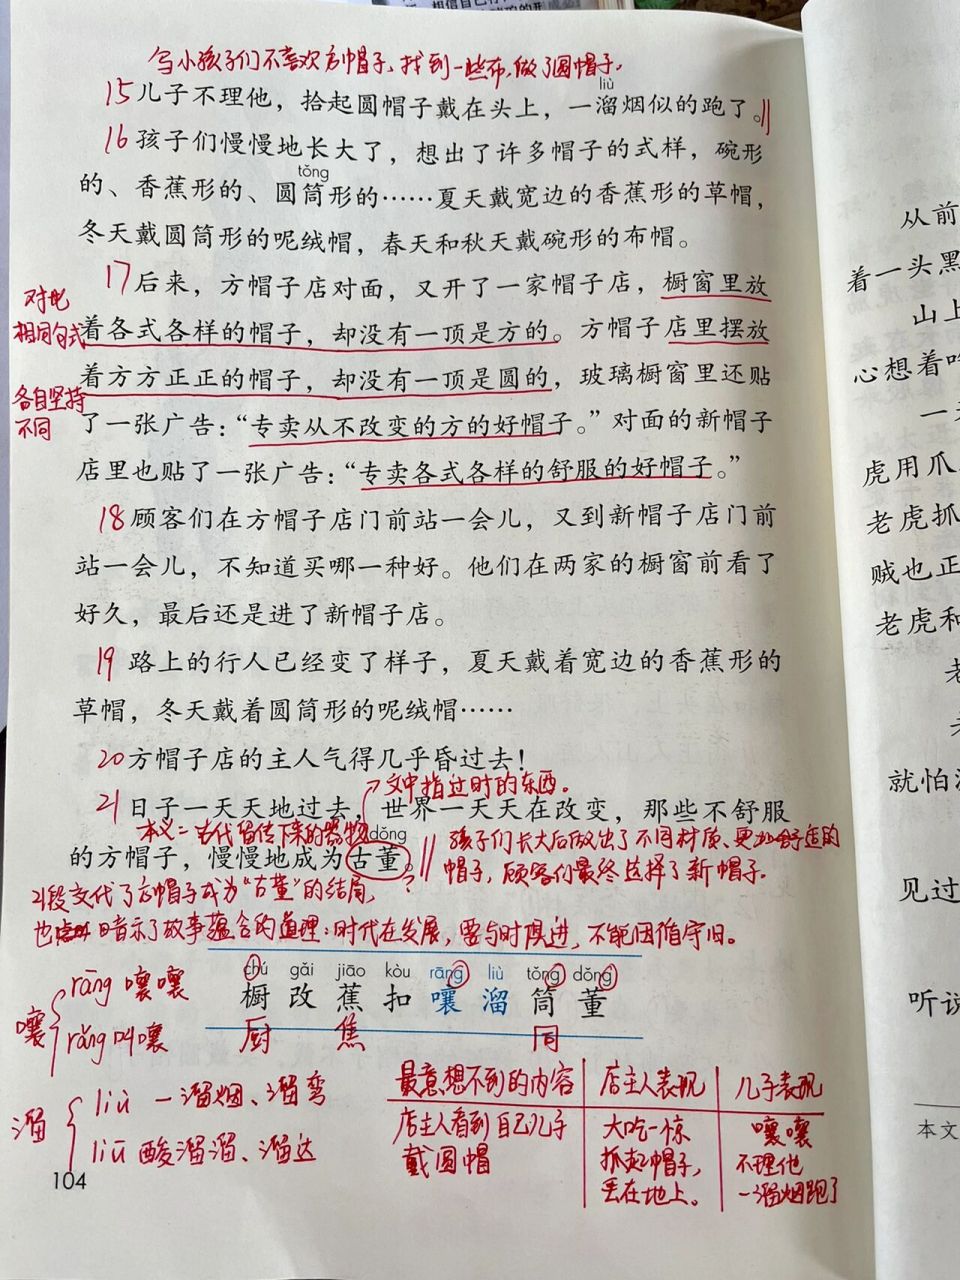 写小孩子们不喜欢方帽子，找到一些布，做了圆帽子。
liù
15儿子不理他，拾起圆帽子戴在头上，一溜烟似的跑了。
16孩子们慢慢地长大了，想出了许多帽子的式样，碗形
tǒng
的、香蕉形的、圆筒形的……夏天戴宽边的香蕉形的草帽，
冬天戴圆筒形的呢绒帽，春天和秋天戴碗形的布帽。
17后来，方帽子店对面，又开了一家帽子店，橱窗里放
对比
相同句式
着各式各样的帽子，却没有一顶是方的。方帽子店里摆放
着方方正正的帽子，却没有一顶是圆的，玻璃橱窗里还贴
各自坚持
不同
了一张广告：“专卖从不改变的方的好帽子。”对面的新帽子
店里也贴了一张广告：“专卖各式各样的舒服的好帽子。”
18顾客们在方帽子店门前站一会儿，又到新帽子店门前
站一会儿，不知道买哪一种好。他们在两家的橱窗前看了
好久，最后还是进了新帽子店。
19路上的行人已经变了样子，夏天戴着宽边的香蕉形的
草帽，冬天戴着圆筒形的呢绒帽……
20方帽子店的主人气得几乎昏过去！
文中指过时的东西。
21日子一天天地过去，世界一天天在改变，那些不舒服
本义：古代留传下来的器物
dǒng
的方帽子，慢慢地成为古董。
孩子们长大后做出了不同材质、更加舒适的
帽子，顾客们最终选择了新帽子。
21段交代了方帽子成为“古董”的结局，
也暗示了故事蕴含的道理：时代在发展，要与时俱进，不能因循守旧。
chú gǎi jiāo kòu rāng liù tǒng dǒng
橱 改 蕉 扣 嚷 溜 筒 董
厨 焦 同
嚷
rāng 嚷嚷
rǎng 叫嚷
溜
liù 一溜烟、溜弯
liū 酸溜溜、溜达
最意想不到的内容 店主人表现 儿子表现
店主人看到自己儿子 大吃一惊 嚷嚷
戴圆帽 抓起帽子， 不理他
丢在地上。 一溜烟跑了
104
从前
着一头黑
山上
心想着
一
虎用爪
老虎抓
贼也正
老虎和
老
就怕
见过
听说
本文